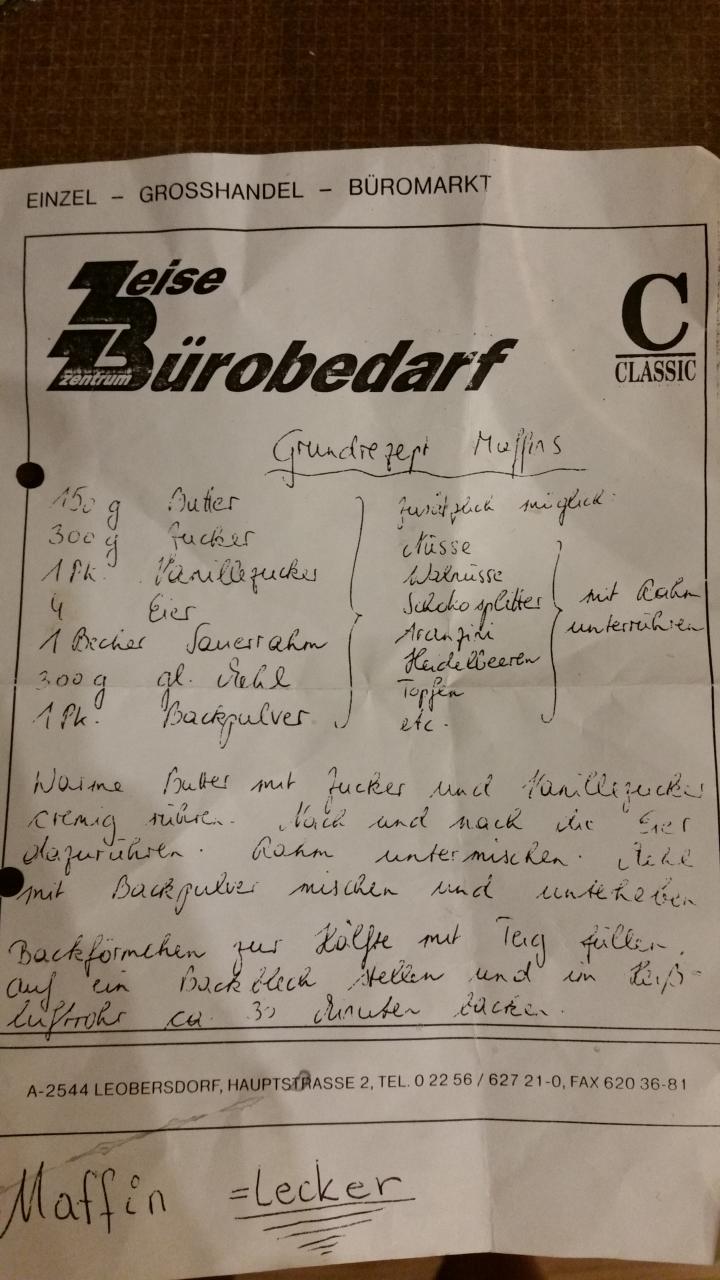 EINZEL – GROSSHANDEL – BÜROMARKT
Zeise
Bürobedarf
zentrum
C
CLASSIC
Grundrezept Muffins
150 g Butter
300 g Zucker
1 Pk. Vanillezucker
4 Eier
1 Becher Sauerrahm
300 g gl. Mehl
1 Pk. Backpulver
zusätzlich möglich:
Nüsse
Walnüsse
Schokosplitter
Aranzini
Heidelbeeren
Topfen
etc.
mit Rahm
unterrühren
Warme Butter mit Zucker und Vanillezucker
cremig rühren. Nach und nach die Eier
dazurühren. Rahm untermischen. Mehl
mit Backpulver mischen und unterheben
Backförmchen zur Hälfte mit Teig füllen,
auf ein Backblech stellen und im Heiß-
luftrohr ca. 30 Minuten backen.
A-2544 LEOBERSDORF, HAUPTSTRASSE 2, TEL. 0 22 56 / 627 21-0, FAX 620 36-81
Maffin =Lecker